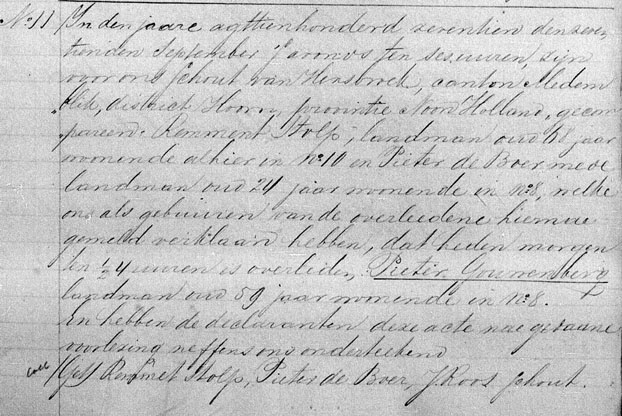 No 11 In den jaare agttienhonderd zeventien den zeven-
tienden September s'avonds ten ses uuren, zijn
voor ons schout van Hensbroek, canton Medem
blik, district Hoorn, provintie Noord Holland, gecom
pareerd: Remment Stolp, landman oud 48 jaar
woonende alhier in No 10 en Pieter de Boer mede
landman oud 24 jaar woonende in No 8, welke
ons als gebuuren van de overledene hierna
gemeld verklaard hebben, dat heden morgen
ten ½ 4 uuren is overleden, Pieter Gouwenberg
landman oud 59 jaar woonende in No 8.
En hebben de declaranten deze acte nae gedaane
voorlesing neffens ons ondertekend
(Get) Remmet Stolp, Pieter de Boer, J Roos schout.